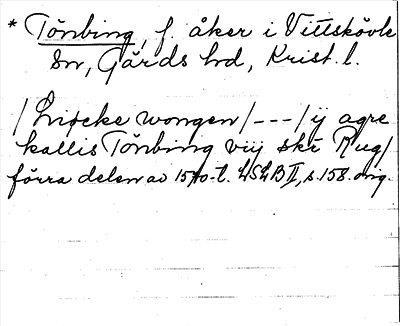 * Tönbing, f. åker i Vittskövle
sn, Gärds hd, Krist. l.
/ wongen/---/ij agre
kallis Tönbing viij ske Rug/
förra delen av 1570-t. LSLB II, s. 158. orig.